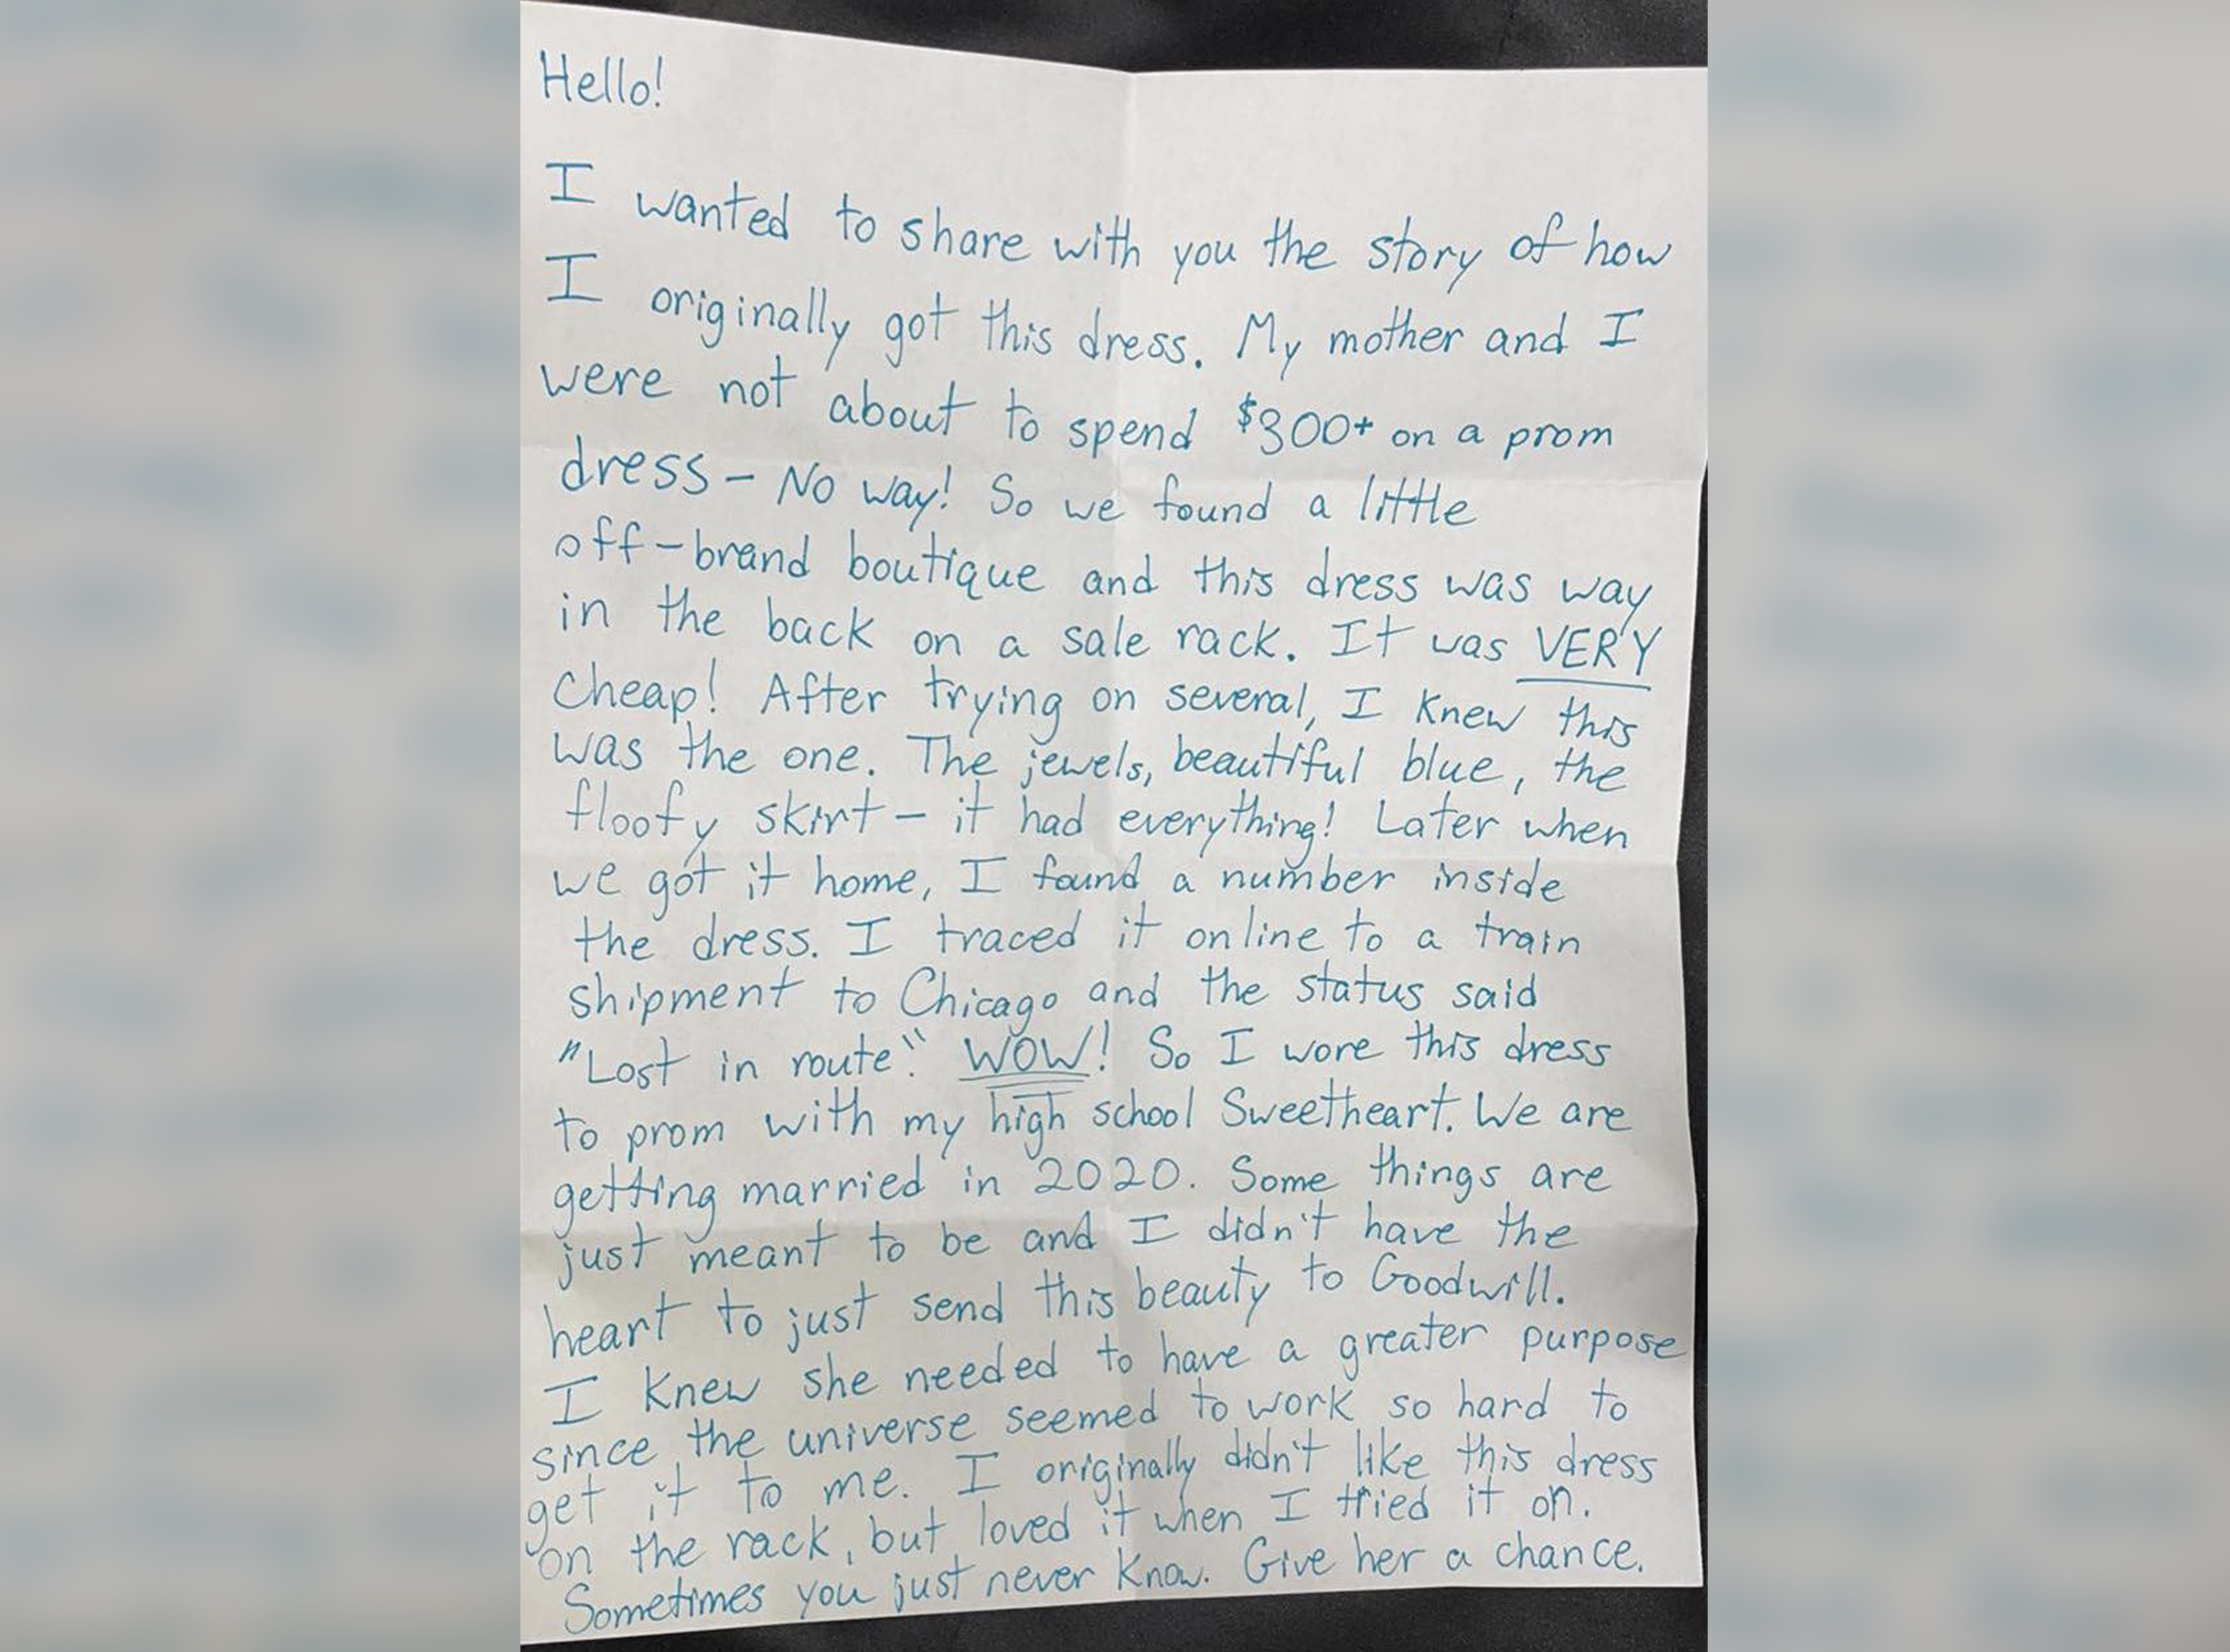 Hello!
I wanted to share with you the story of how
I originally got this dress. My mother and I
were not about to spend $300+ on a prom
dress - No way! So we found a little
off-brand boutique and this dress was way
in the back on a sale rack. It was VERY
cheap! After trying on several, I knew this
was the one. The jewels, beautiful blue, the
floofy skirt - it had everything! Later when
we got it home, I found a number inside
the dress. I traced it online to a train
shipment to Chicago and the status said
"Lost in route." WOW! So I wore this dress
to prom with my high school Sweetheart. We are
getting married in 2020. Some things are
just meant to be and I didn't have the
heart to just send this beauty to Goodwill.
I knew she needed to have a greater purpose
since the universe seemed to work so hard to
get it to me. I originally didn't like this dress
on the rack, but loved it when I tried it on.
Sometimes you just never know. Give her a chance.